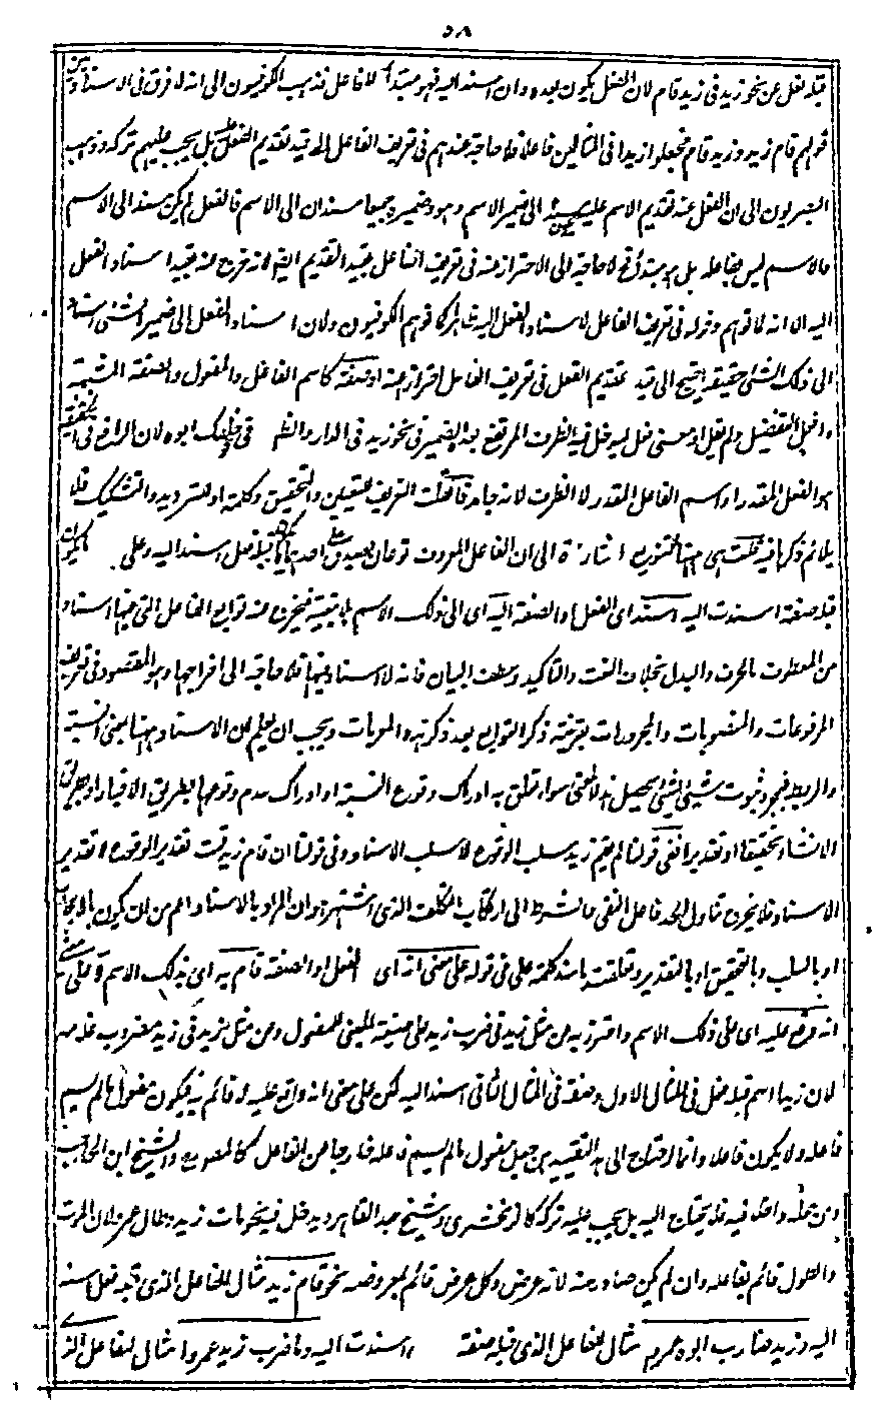 ٥٨
قبله فعل عن نحو زيد في زيد قام لان الفعل يكون بعده وان اسند اليه فهو مبتدأ لا فاعل فذهب الكوفيون الى انه لا فرق في الاسناد بين
قولهم قام زيد وزيد قام فجعلوا زيدا في المثالين فاعلا فلا حاجة عندهم في تعريف الفاعل الى قيد تقديم الفعل عليه بل يجب عليهم تركه وذهب
البصريون الى ان الفعل عند تقديم الاسم عليه الى ضمير الاسم وهو وضميره جميعا مسندان الى الاسم فالفعل لم يكن مسندا الى الاسم
فالاسم ليس بفاعله بل هو مبتدأ فح لا حاجة الى الاحتراز عنه في تعريف الفاعل بقيد التقديم اليه لانه خرج عنه بقيد اسناد الفعل
اليه الا انه لما توهم دخوله في تعريف الفاعل لاسناد الفعل اليه ظاهرا كما توهم الكوفيون ولان اسناد الفعل الى ضمير الشئ اسناد
الى ذلك الشئ حقيقة احتيج الى قيد تقديم الفعل في تعريف الفاعل احترازا عنه او صفة كاسم الفاعل والمفعول والصفة المشبهة
وافعل التفضيل ولم يقل او معنى فعل ليدخل فيه الظرف المرتفع به الضمير في نحو زيد في الدار والظاهر في ابوه لان الرافع في الحقيقة
هو الفعل المقدر او اسم الفاعل المقدر لا الظرف لانه جامد فان قلت التعريف للتعيين والتحقيق وكلمة او للترديد والتشكيك فلا
يلائم ذكرها فيه قلت هي ههنا للتنويع اشارة الى ان الفاعل المعروف نوعان احدهما ما قبله فعل اسند اليه وعلى ما يكون
قبله صفة اسندت اليه اسند اى الفعل او الصفة اليه اى الى ذلك الاسم لا بتبعية فيخرج عنه توابع الفاعل التي فيها اسناد
من المعطوف بالحرف والبدل بخلاف النعت والتأكيد وعطف البيان فانه لا اسناد فيها فلا حاجة الى اخراجها وهو المقصود في تعريف
المرفوعات والمنصوبات والمجرورات بقرينة ذكر التوابع بعد ذكر هذه المعربات ويجب ان يعلم ان الاسناد ههنا بمعنى النسبة
والربط فبمجرد ثبوت شيئ لشيئ يحصل هذا المعنى سواء تعلق به ادراك وقوع النسبة او ادراك عدم وقوعها بطريق الاخبار او بطريق
الانشاء تحقيقا او تقديرا ففي قولنا لم يقم زيد سلب الوقوع لا سلب الاسناد وفي قولنا ان قام زيد قمت تقدير الوقوع لا تقدير
الاسناد فلا يخرج تناول الحد فاعل النفي والشرط الى ارتكاب التكلف الذي اشتهر وان المراد بالاسناد اعم من ان يكون بالايجاب
او بالسلب وبالتحقيق او بالتقدير وتعلقت باسند كلمة على في قوله على معنى انه اى الفعل او الصفة قام به اى بذلك الاسم او على معنى
انه وقع عليه اى على ذلك الاسم واحترز به من مثل زيد في ضرب زيد على صيغة المبنى للمفعول ومن مثل زيد في زيد مضروب غلامه
لان زيدا اسم قبله فعل في المثال الاول وصفة في المثال الثاني اسند اليه لكن على معنى انه واقع عليه لا قائم به فيكون مفعول ما لم يسم
فاعله ولا يكون فاعلا وانما احتاج الى هذا التقييد من جعل مفعول ما لم يسم فاعله خارجا من الفاعل كالمصنف والشيخ ابن الحاجب
ومن جعله داخلا فيه فلا يحتاج اليه بل يجب عليه تركه كالزمخشرى والشيخ عبد القاهر ودخل فيه نحو مات زيد وطال عمر لان الموت
والطول قائم بفاعله وان لم يكن صادرا عنه لانه عرض وكل عرض قائم بمعروضه نحو قام زيد مثال للفاعل الذي قبله فعل اسند
اليه وزيد ضارب ابوه عمرا مثال للفاعل الذي قبله صفة اسندت اليه وما ضرب زيد عمروا مثال لفاعل الذ